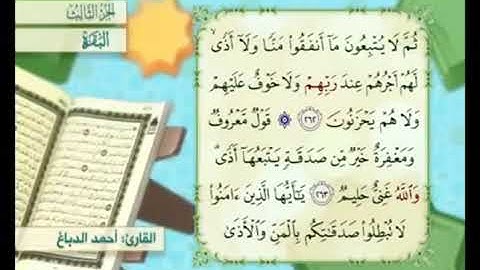 الجزء الثالث
البقرة
ثُمَّ لَا يُتْبِعُونَ مَآ أَنفَقُوا۟ مَنًّا وَلَآ أَذًى ۙ
لَّهُمْ أَجْرُهُمْ عِندَ رَبِّهِمْ وَلَا خَوْفٌ عَلَيْهِمْ
وَلَا هُمْ يَحْزَنُونَ ٢٦٢ ۞ قَوْلٌ مَّعْرُوفٌ
وَمَغْفِرَةٌ خَيْرٌ مِّن صَدَقَةٍ يَتْبَعُهَآ أَذًى ۗ
وَٱللَّهُ غَنِىٌّ حَلِيمٌ ٢٦٣ يَـٰٓأَيُّهَا ٱلَّذِينَ ءَامَنُوا۟
لَا تُبْطِلُوا۟ صَدَقَـٰتِكُم بِٱلْمَنِّ وَٱلْأَذَىٰ
القارئ: أحمد الدباغ